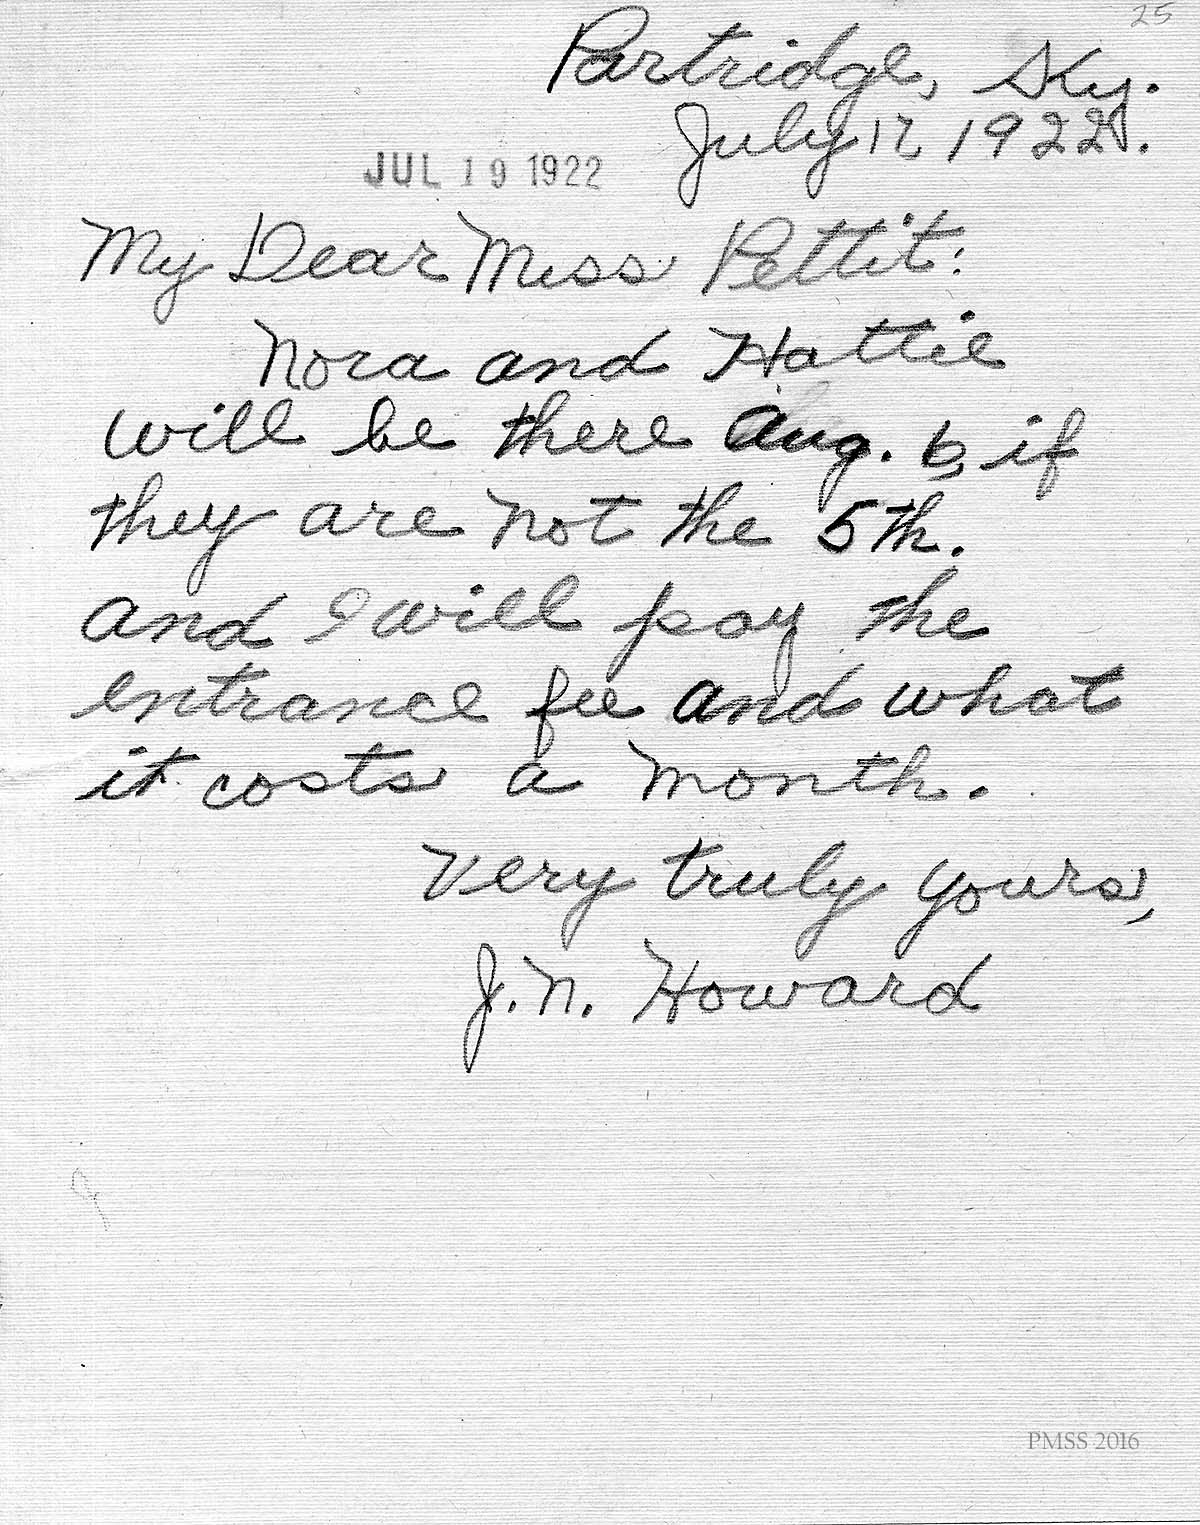 25
Partridge, Ky.
July 17 1922.
JUL 19 1922
My Dear Miss Pettit:
Nora and Hattie
will be there Aug. 6, if
they are not the 5th.
and I will pay the
entrance fee and what
it costs a month.
Very truly yours,
J. N. Howard
PMSS 2016